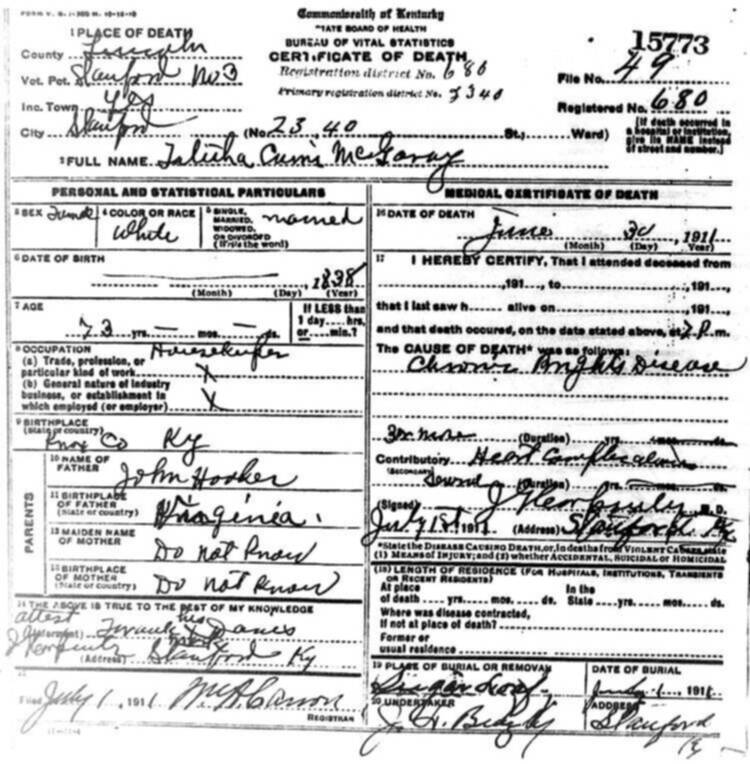 FORM V. S. 1-300 M. 10-12-10
Commonwealth of Kentucky
STATE BOARD OF HEALTH
BUREAU OF VITAL STATISTICS
CERTIFICATE OF DEATH
15773
1 PLACE OF DEATH
County Lincoln
Vot. Pct. Stanford No 3
Inc. Town Yes
City Stanford
Registration district No. 680
Primary registration district No. 2340
File No. 49
Registered No. 680
(No. 23,40 St.; Ward)
[If death occurred in a hospital or institution, give its NAME instead of street and number.]
2 FULL NAME Tabitha Cumi McGaray
PERSONAL AND STATISTICAL PARTICULARS
3 SEX Female
4 COLOR OR RACE White
5 SINGLE, MARRIED, WIDOWED, OR DIVORCED (Write the word) married
6 DATE OF BIRTH
1838
(Month) (Day) (Year)
7 AGE
73 yrs. — mos. — ds.
If LESS than 1 day....hrs. or....min.?
8 OCCUPATION Housekeeper
(a) Trade, profession, or
particular kind of work X
(b) General nature of industry
business, or establishment in
which employed (or employer) X
9 BIRTHPLACE
(State or country) Knox Co Ky
PARENTS
10 NAME OF FATHER John Hooker
11 BIRTHPLACE OF FATHER (State or country) Virginia.
12 MAIDEN NAME OF MOTHER Do not Know
13 BIRTHPLACE OF MOTHER (State or country) Do not Know
14 THE ABOVE IS TRUE TO THE BEST OF MY KNOWLEDGE
attest
(Informant) Frank his X mark Danes
(Address) Stanford Ky
15
Filed July 1, 1911 REGISTRAR
MEDICAL CERTIFICATE OF DEATH
16 DATE OF DEATH
June 30, 1911
(Month) (Day) (Year)
17 I HEREBY CERTIFY, That I attended deceased from
,191 , to ,191 ,
that I last saw h alive on ,191 ,
and that death occured, on the date stated above, at 7 P. m.
The CAUSE OF DEATH* was as follows:
Chronic Brights Disease
(Duration) yrs. mos. ds.
Contributory Heart
(SECONDARY)
(Duration) yrs. mos. ds.
(Signed) M. D.
July 1st 1911 (Address) Stanford Ky
*State the DISEASE CAUSING DEATH, or, in deaths from VIOLENT CAUSES, state
(1) MEANS OF INJURY; and (2) whether ACCIDENTAL, SUICIDAL OR HOMICIDAL
(18) LENGTH OF RESIDENCE (FOR HOSPITALS, INSTITUTIONS, TRANSIENTS
OR RECENT RESIDENTS)
At place of death yrs. mos. ds. In the State yrs. mos. ds.
Where was disease contracted,
If not at place of death?
Former or
usual residence
19 PLACE OF BURIAL OR REMOVAL
DATE OF BURIAL
July 1, 1911
20 UNDERTAKER
J. H.
ADDRESS
Stanford
Ky